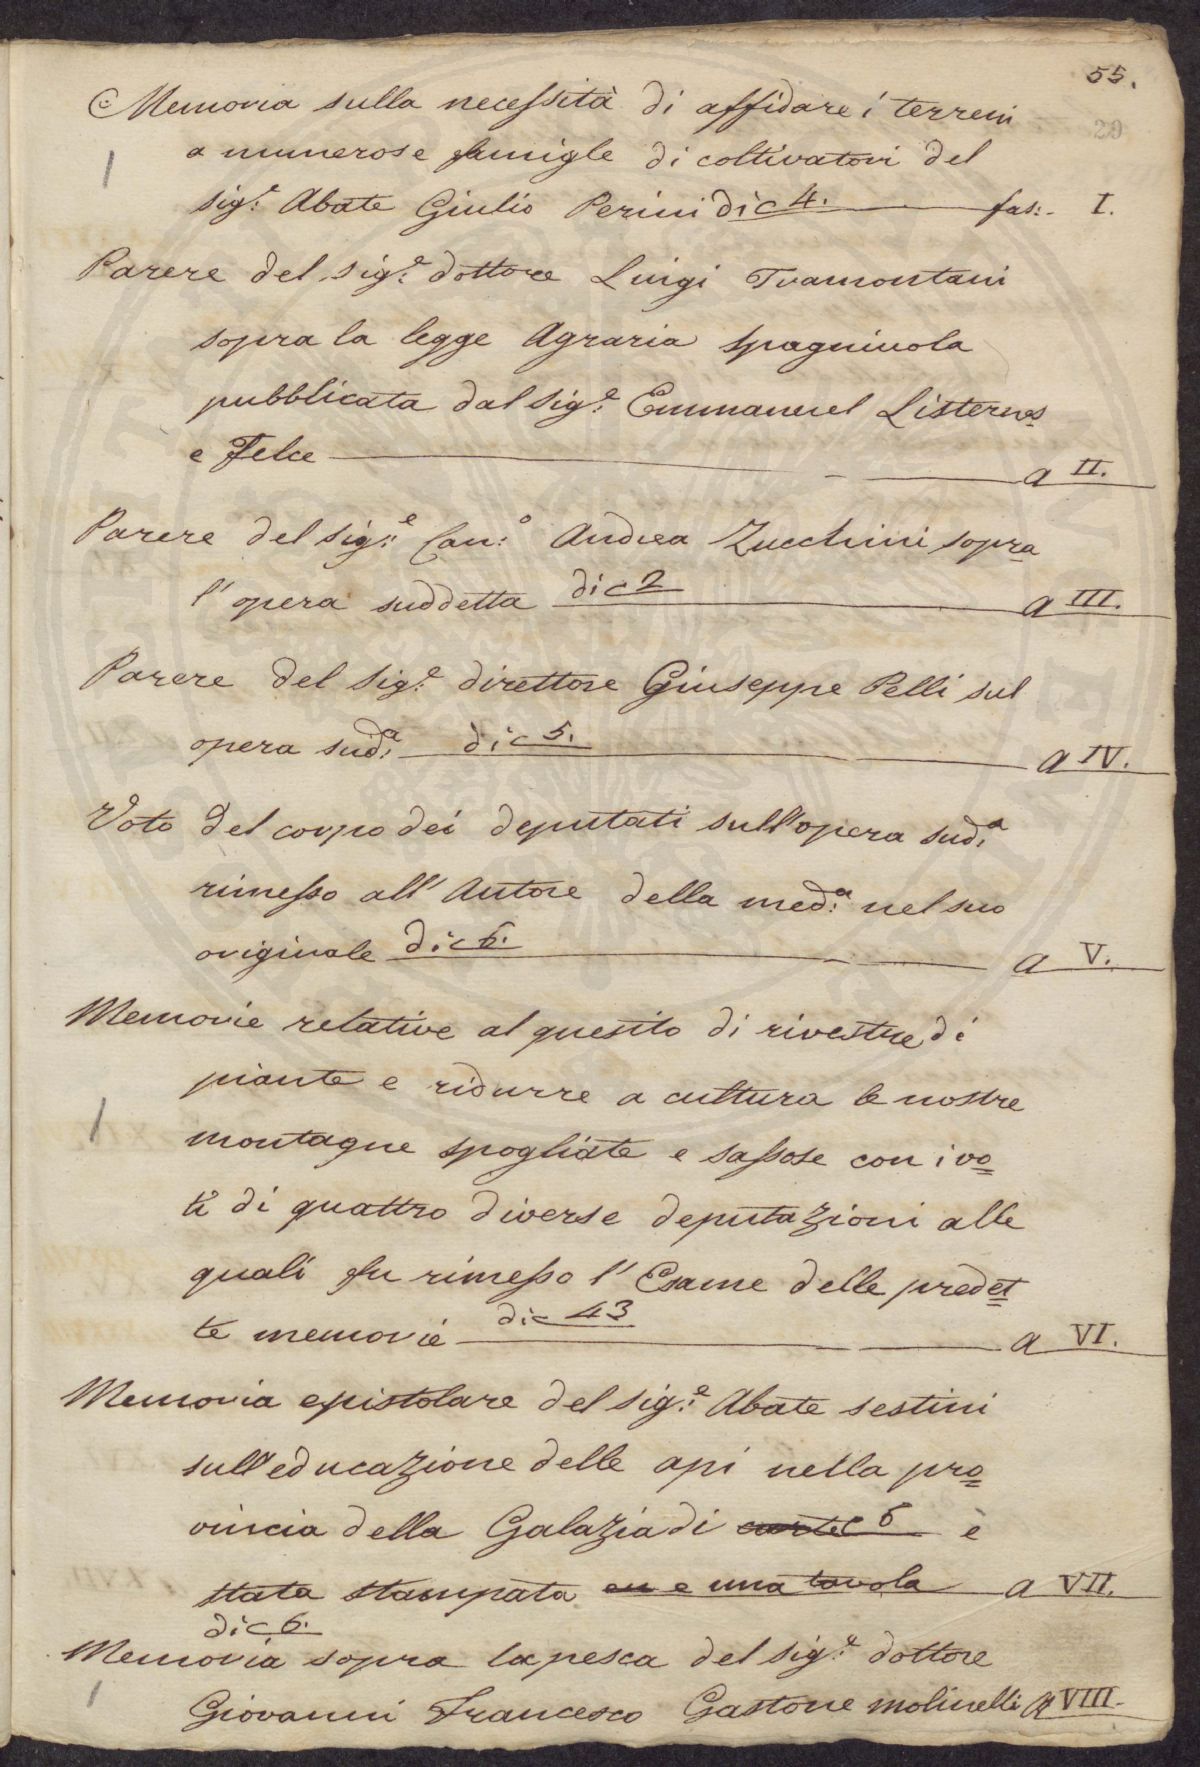 55.
20
Memoria sulla necessità di affidare i terreni
a numerose famigle di coltivatori del
sig.e Abate Giulio Perini di c 4. fas:- I.
Parere del sig.e dottore Luigi Tramontani
sopra la legge Agraria spagniuola
pubblicata dal sig.e Emmanuel
e Felce a II.
Parere del sig.e Can.o Andrea Zucchini sopra
l'opera suddetta di c 2 a III.
Parere del sig.e direttore Giuseppe Pelli sul
opera sud.a di c 5. a IV.
Voto del corpo dei deputati sull'opera sud.a
rimesso all'Autore della med.a nel suo
originale di c 6. a V.
Memorie relative al quesito di rivestire di
piante e ridurre a cultura le nostre
montagne spogliate e sassose con i vo=
ti di quattro diverse deputazioni alle
quali fu rimesso l'Esame delle predet=
te memorie di c 43 a VI.
Memoria epistolare del sig.e Abate sestini
sull'educazione delle api nella pro=
vincia della Galazia di carte c 6 è
stata stampata e una tavola a VII.
di c 6.
Memoria sopra la pesca del sig.e dottore
Giovanni Francesco Gastone molinelli a VIII.